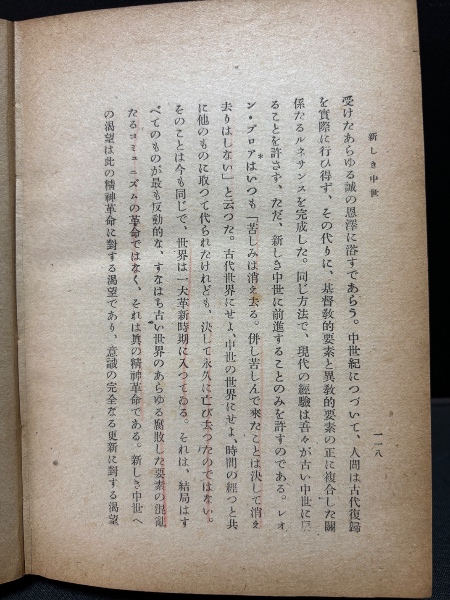 新しき中世
一一八
受けたあらゆる誠の恩澤に浴すであらう。中世紀につづいて、人間は古代復歸
を實際に行ひ得ず、その代りに、基督敎的要素と異敎的要素の正に複合した關
係たるルネサンスを完成した。同じ方法で、現代の經驗は吾々が古い中世に
ることを許さず、ただ、新しき中世に前進することのみを許すのである。レオ
ン・ブロアはいつも「苦しみは消え去る。併し苦しんで來たことは決して消え
去りはしない」と云つた。古代世界にせよ、中世の世界にせよ、時間の經つと共
に他のものに取つて代られたけれども、決して永久に亡び去つたのではない。
そのことは今も同じで、世界は一大革新時期に入つてゐる。それは、結局はす
べてのものが最も反動的な、すなはち古い世界のあらゆる腐敗した要素の混亂
たるコミュニズムの革命ではなく、それは眞の精神革命である。新しき中世へ
の渴望は此の精神革命に對する渴望であり、意識の完全なる更新に對する渴望